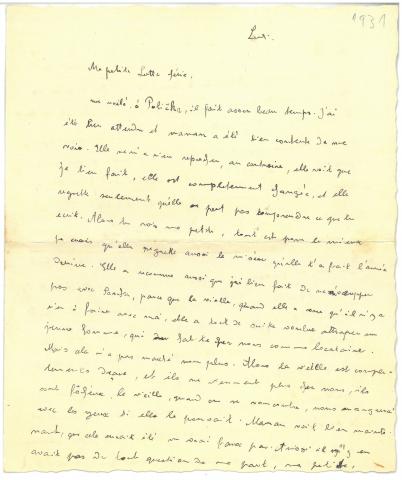 1931
Ma petite Lotte chérie,
me voilà à Polička, il fait assez beau temps. J'ai
été bien attendu et maman a été bien contente de me
voir. Elle ne m'a rien reproché, au contraire, elle voit que
j'ai bien fait, elle est complètement changée, et elle
regrette seulement qu'elle ne peut pas comprendre ce que tu
écris. Alors tu vois ma petite, tout est pour le mieux
je crois qu'elle regrette aussi la misère qu'elle t'a fait l'année
dernière. Elle a reconnu aussi que j'ai bien fait de ne m'occuper
pas avec parce que la vieille, quand elle a vu qu'il n'y a
rien à faire avec moi, elle a tout de suite voulu attraper un
jeune homme, qui chez nous comme locataire.
Mais ça n'a pas marché non plus. Alors la vieille est complè-
tement et ils ne viennent plus chez nous, ils
sont fâchés, la vieille, quand on se rencontre, nous mangerait
avec les yeux si elle le pouvait. Maman voit bien mainte-
nant, que cela aurait été un Aussi il n'y en
avait pas du tout question de ma part, ma petite,